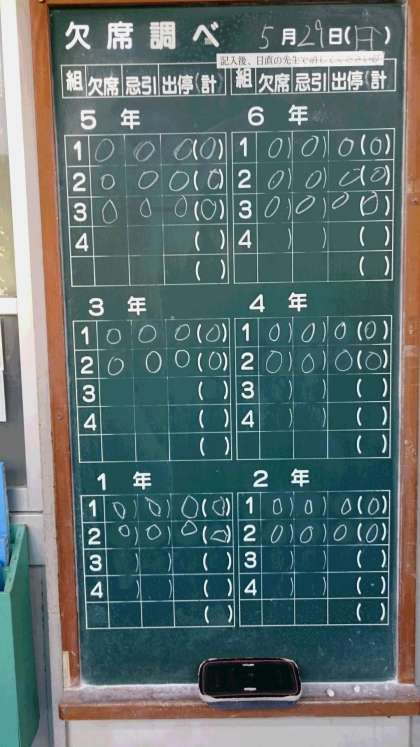 欠席調べ 5月29日(日)
記入後、日直の先生
組 欠席 忌引 出停 (計) 組 欠席 忌引 出停 (計)
5年 6年
1 0 0 0 (0) 1 0 0 0 (0)
2 0 0 0 (0) 2 0 0 0 (0)
3 0 0 0 (0) 3 0 0 0 (0)
4 ( ) 4 ( )
( ) ( )
3年 4年
1 0 0 0 (0) 1 0 0 0 (0)
2 0 0 0 (0) 2 0 0 0 (0)
3 ( ) 3 ( )
4 ( ) 4 ( )
( ) ( )
1年 2年
1 0 0 0 (0) 1 0 0 0 (0)
2 0 0 0 (0) 2 0 0 0 (0)
3 ( ) 3 ( )
4 ( ) 4 ( )
( ) ( )